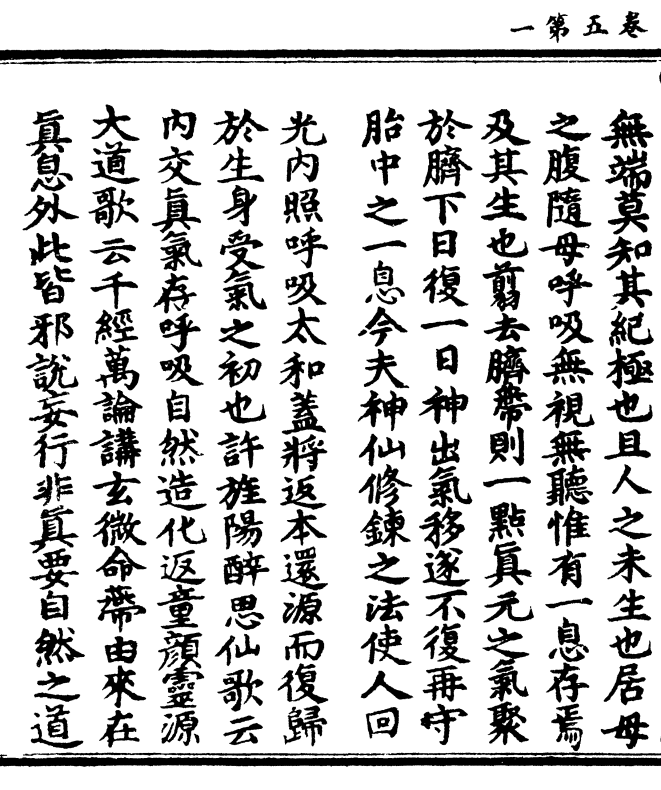 卷五第一
無端莫知其紀極也且人之未生也居母
之腹隨母呼吸無視無聽惟有一息存焉
及其生也翦去臍帶則一點真元之氣聚
於臍下日復一日神出氣移遂不復再守
胎中之一息今夫神仙修鍊之法使人回
光內照呼吸太和蓋將返本還源而復歸
於生身受氣之初也許旌陽醉思仙歌云
內交眞氣存呼吸自然造化返童顏靈源
大道歌云千經萬論講玄微命帶由來在
眞息外此皆邪說妄行非眞要自然之道